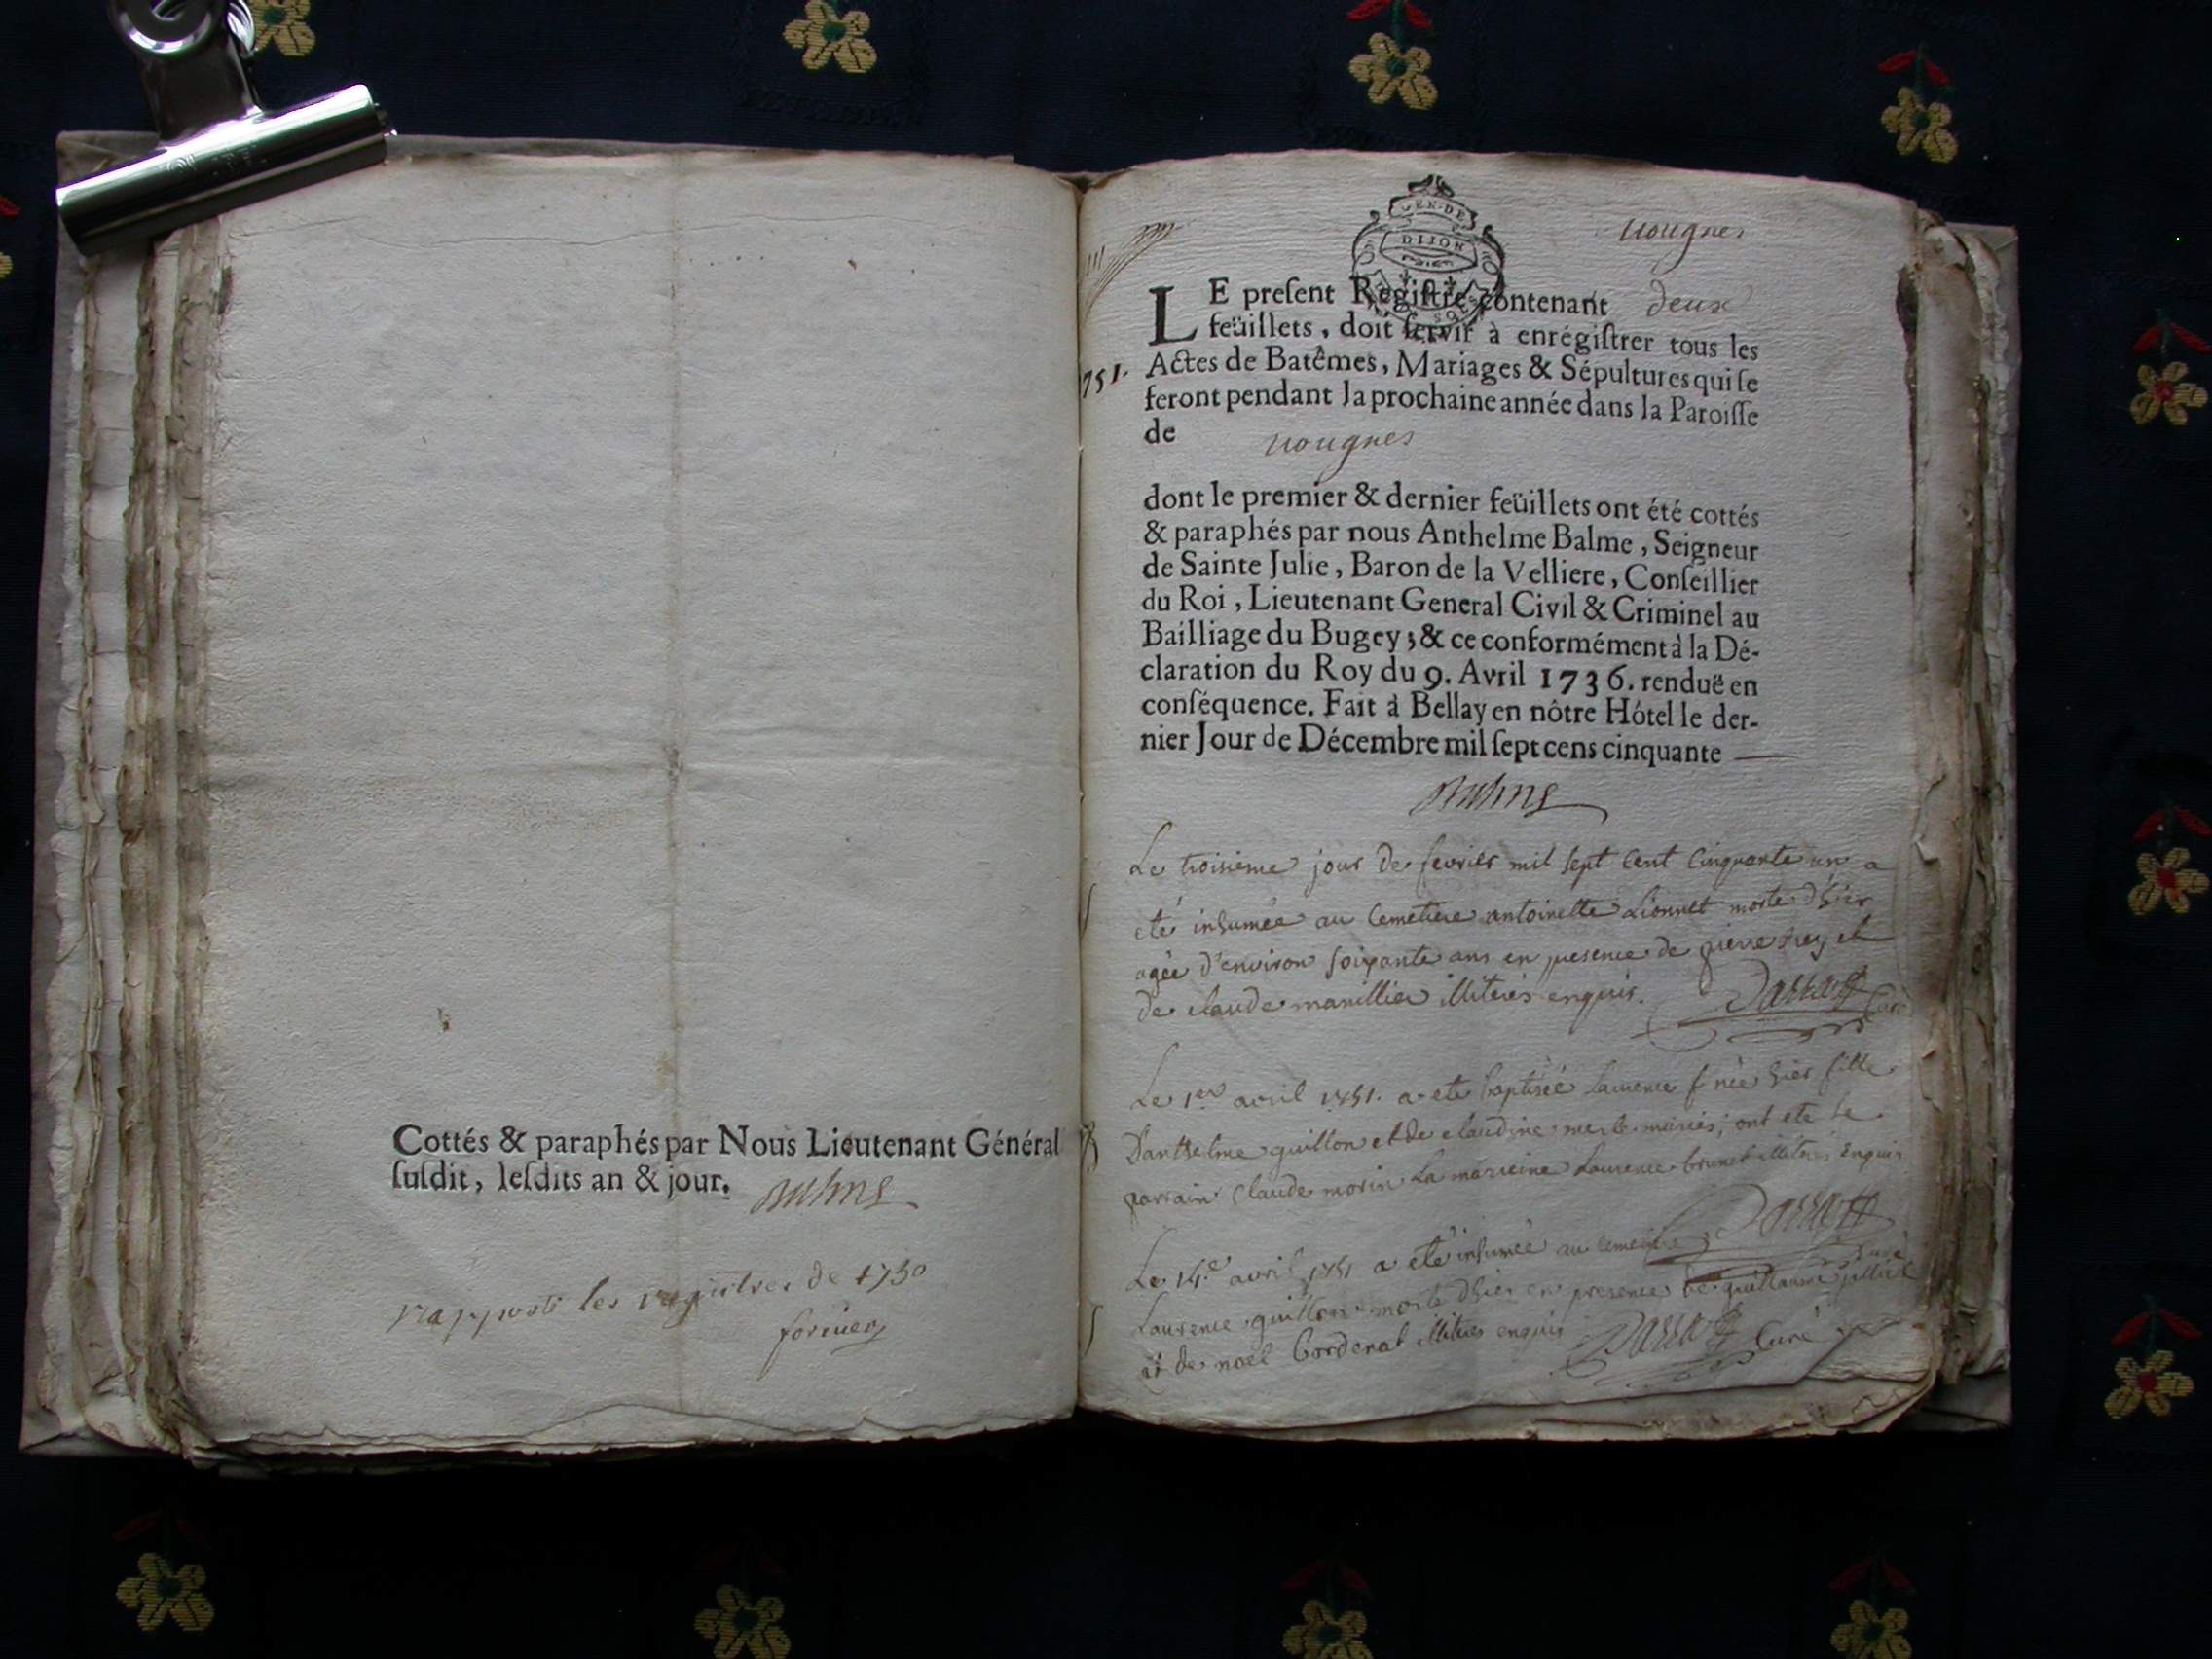 Cottés & paraphés par Nous Lieutenant Général
ſuſdit, leſdits an & jour.
rapporté les registres de 1750
GEN. DE
DIJON
vougnes
LE preſent Regiſtre contenant deux
feüillets, doit ſervir à enrégiſtrer tous les
751. Actes de Batêmes, Mariages & Sépultures qui ſe
feront pendant la prochaine année dans la Paroiſſe
de vougnes
dont le premier & dernier feüillets ont été cottés
& paraphés par nous Anthelme Balme, Seigneur
de Sainte Julie, Baron de la Velliere, Conſeillier
du Roi, Lieutenant General Civil & Criminel au
Bailliage du Bugey; & ce conformément à la Dé-
claration du Roy du 9. Avril 1736. renduë en
conſéquence. Fait à Bellay en nôtre Hôtel le der-
nier Jour de Décembre mil ſept cens cinquante
Le troisieme jour de fevrier mil sept cent cinquante un a
eté inhumée au cemetiere antoinette Lionnet morte d'hier
agée d'environ soixante ans en presence de pierre et
de claude manillier illiterés enquis. Curé
Le 1er avril 1751. a eté baptisée laurence née hier fille
D'anthelme guillon et de claudine merle mariés; ont eté le
parrain Claude morin La marreine Laurence brunet illiterés enquis
Le 14e avril 1751 a eté inhumée au cemetiere Curé
Laurence guillon morte d'hier en presence de guillaume
et de noel Cordenat illiterés enquis Curé